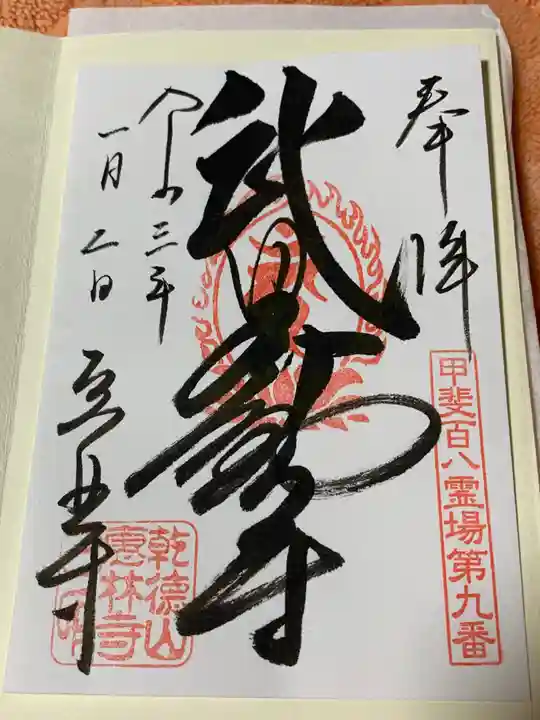 奉拝
甲斐百八霊場第九番
武田不動尊
令和三年
一月二日
恵林寺
乾徳山
恵林寺